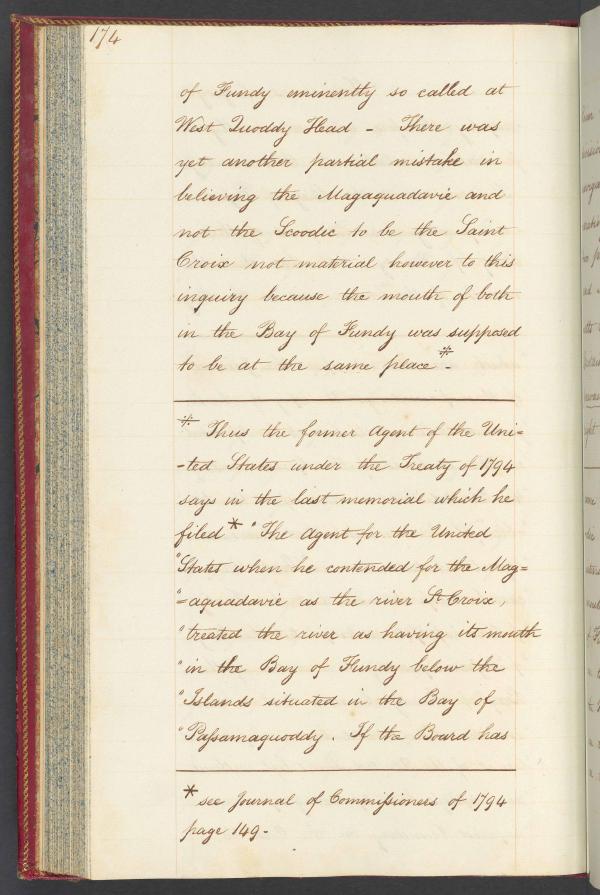 174
of Fundy eminently so called at
West Quoddy Head - There was
yet another partial mistake in
believing the Magaquadavie and
not the Scoodic to be the Saint
Croix not material however to this
inquiry because the mouth of both
in the Bay of Fundy was supposed
to be at the same place ⁜ -
⁜ Thus the former Agent of the Uni=
-ted States under the Treaty of 1794
says in the last memorial which he
filed * "The Agent for the United
"States when he contended for the Mag=
"=aquadavie as the river St Croix,
"treated the river as having its mouth
"in the Bay of Fundy below the
"Islands situated in the Bay of
"Paſsamaquoddy. If the Board has
* see Journal of Commiſsioners of 1794
page 149-